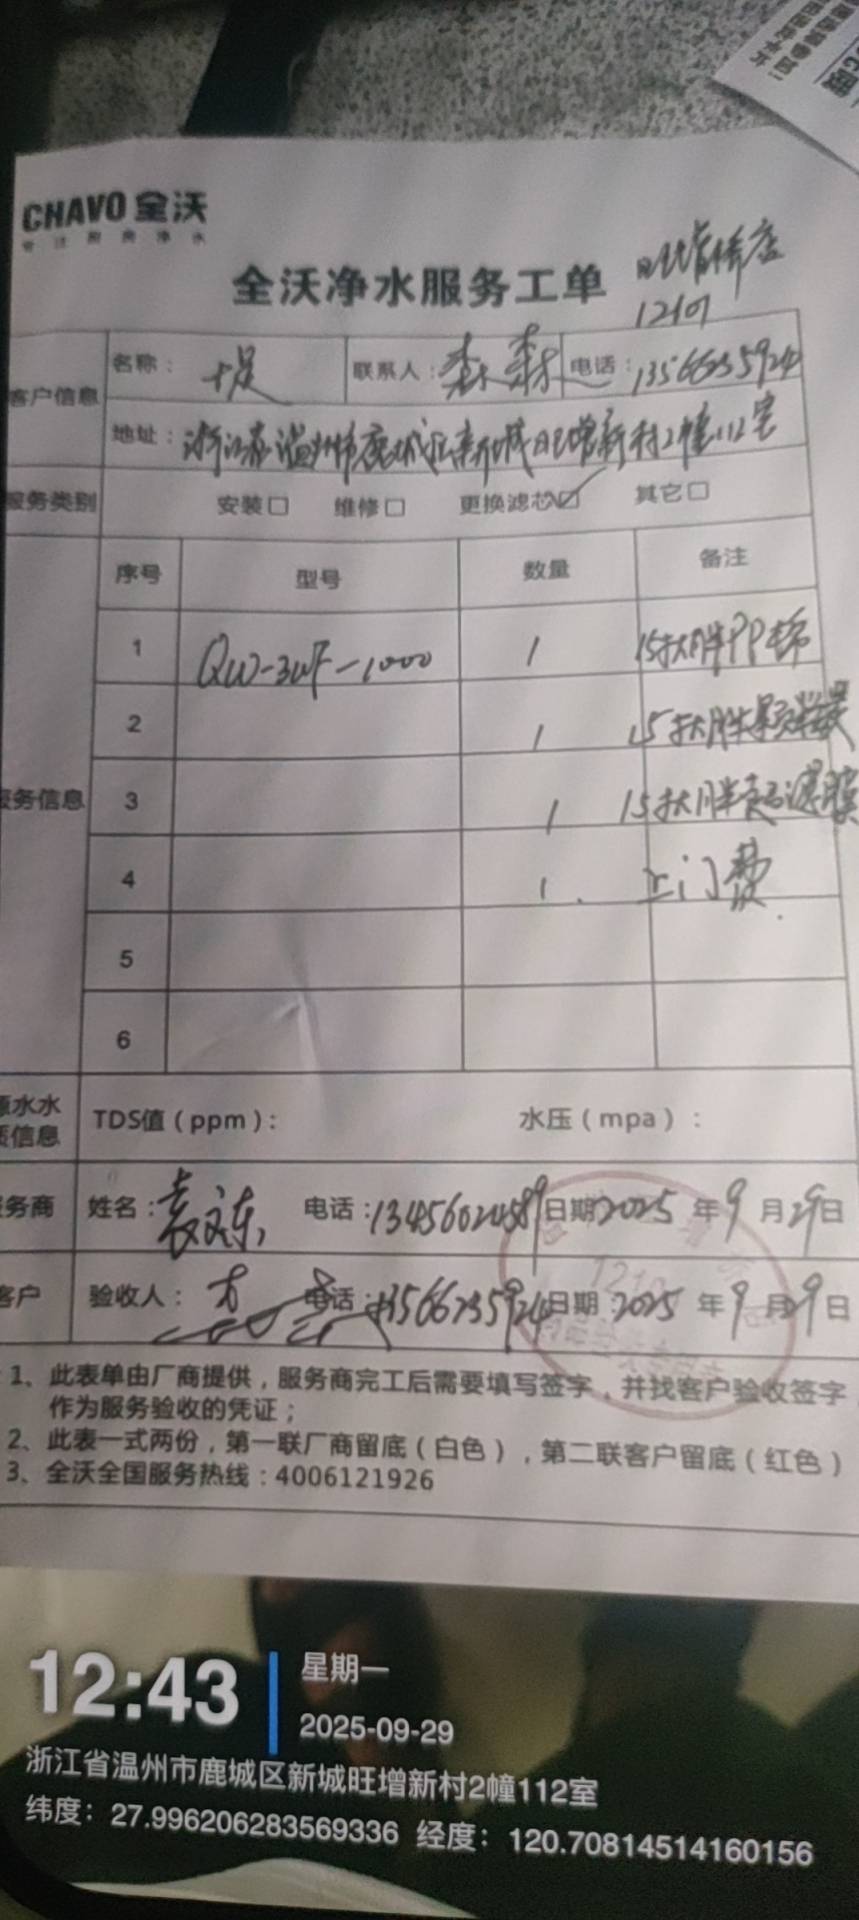 CHAVO 全沃
专注厨房净水
全沃净水服务工单
旺增桥店
12101
客户信息
名称：十足 联系人：森森 电话：13566235924
地址：浙江省温州市鹿城区新城旺增新村2幢112室
服务类别 安装□ 维修□ 更换滤芯☑ 其它□
服务信息
序号 型号 数量 备注
1 QW-3UF-1000 1 15寸大胖PP棉
2 1 15寸大胖颗粒炭
3 1 15寸大胖超滤膜
4 1. 上门费.
5
6
源水水质信息
TDS值（ppm）： 水压（mpa）：
服务商 姓名：袁文东 电话：13456024589 日期 2025 年 9 月 29 日
客户 验收人： 电话：13566235924 日期：2025 年 9 月 29 日
1、此表单由厂商提供，服务商完工后需要填写签字，并找客户验收签字
作为服务验收的凭证；
2、此表一式两份，第一联厂商留底（白色），第二联客户留底（红色）
3、全沃全国服务热线：4006121926
12:43
星期一
2025-09-29
浙江省温州市鹿城区新城旺增新村2幢112室
纬度：27.996206283569336 经度：120.70814514160156